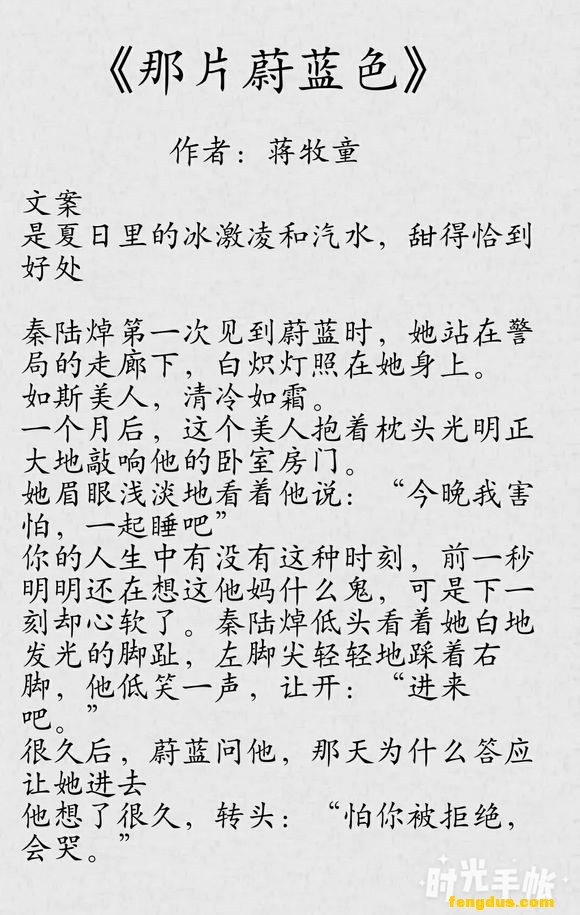 《那片蔚蓝色》
作者：蒋牧童
文案
是夏日里的冰激凌和汽水，甜得恰到
好处
秦陆焯第一次见到蔚蓝时，她站在警
局的走廊下，白炽灯照在她身上。
如斯美人，清冷如霜。
一个月后，这个美人抱着枕头光明正
大地敲响他的卧室房门。
她眉眼浅淡地看着他说：“今晚我害
怕，一起睡吧”
你的人生中有没有这种时刻，前一秒
明明还在想这他妈什么鬼，可是下一
刻却心软了。秦陆焯低头看着她白地
发光的脚趾，左脚尖轻轻地踩着右
脚，他低笑一声，让开：“进来
吧。”
很久后，蔚蓝问他，那天为什么答应
让她进去
他想了很久，转头：“怕你被拒绝，
会哭。”
时光手帐
fengdus.com